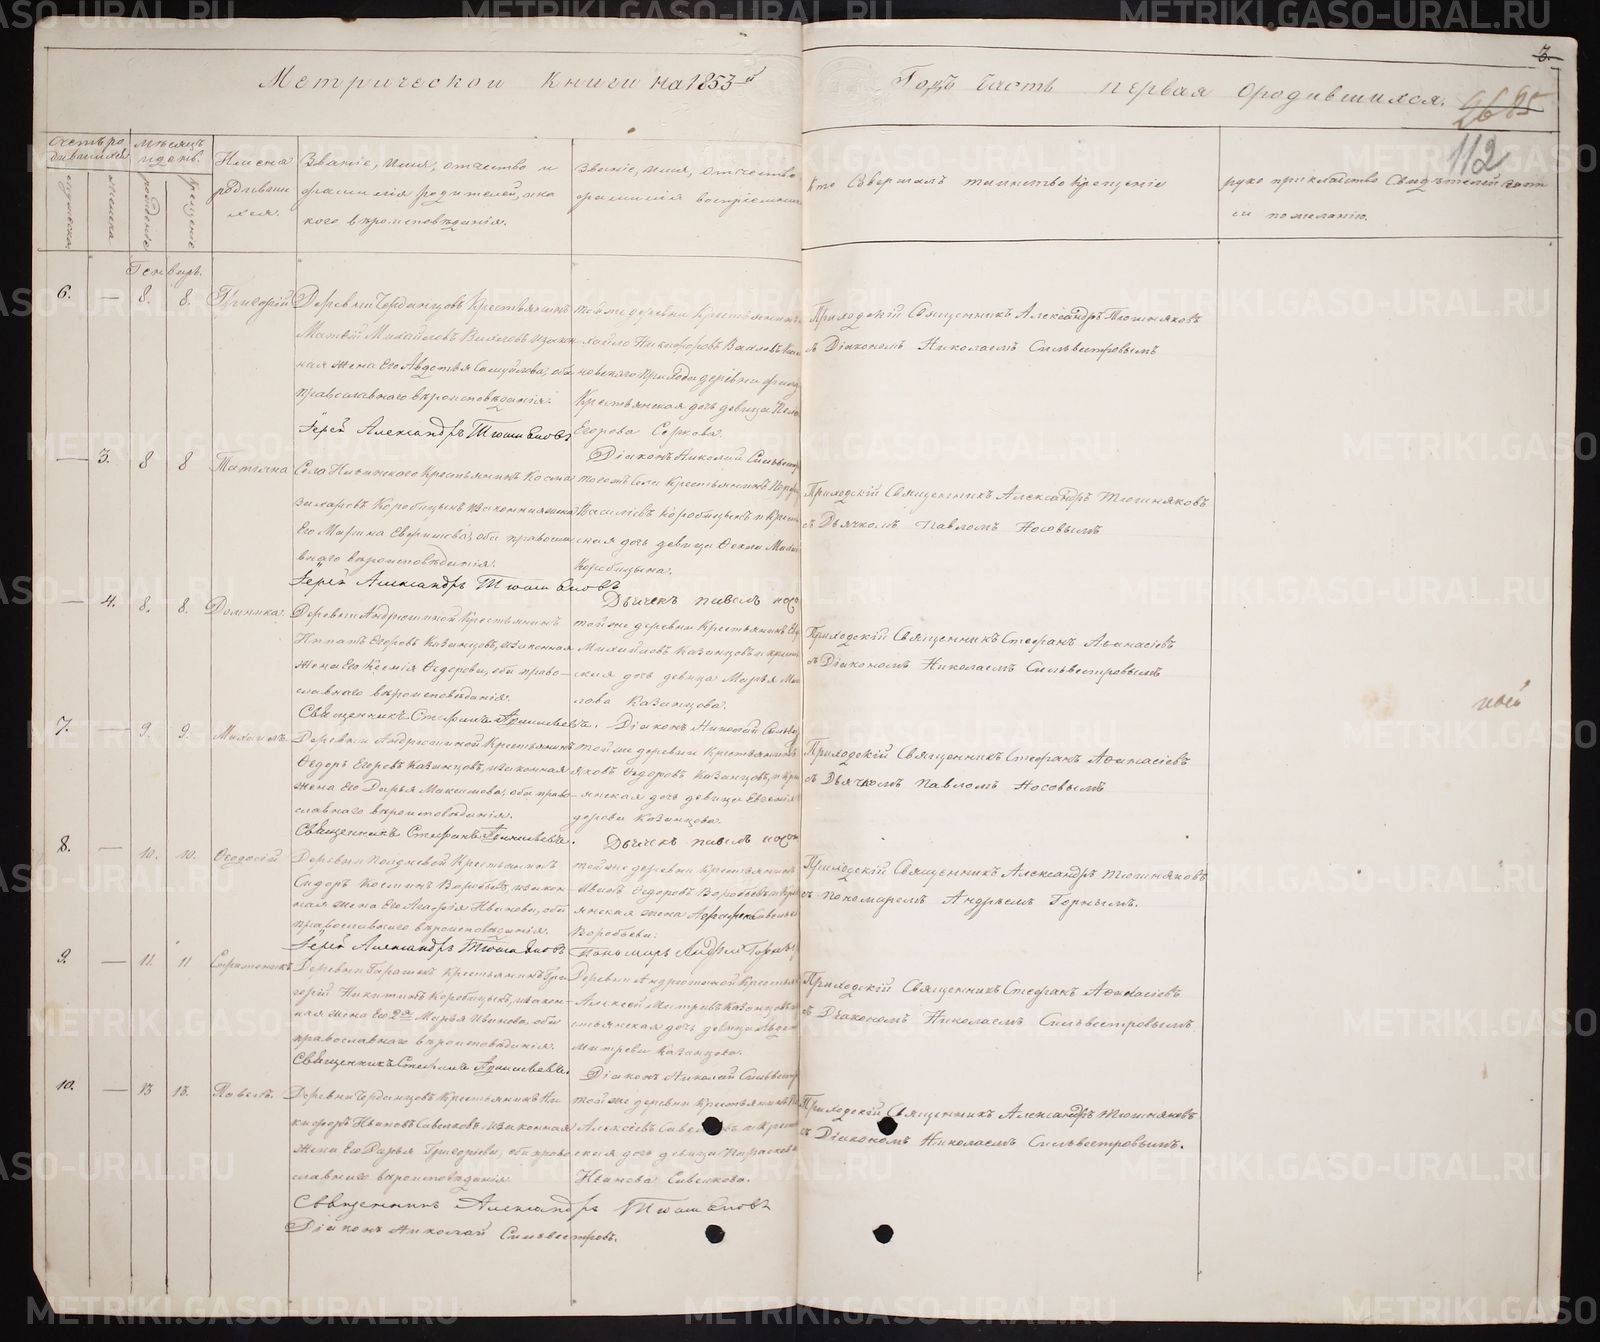 Метрической Книги на 1853й
Годъ Часть первая о родившихся.
3.
2685
112
Счетъ родившихся
Мѣсяцъ и день.
Имена родившихся.
Званіе, имя, отчество и
фамилія родителей, и ка
кого вѣроисповѣданія.
Званіе, имя, отчество
фамилія воспріемник
Кто совершалъ таинство Крещенія
рукоприкладство Свидѣтелей
по желанію.
мужеска
женска
рожденіе
крещеніе
Генварь.
6. — 8. 8. Григорій
Деревни Черданцовъ Крестьянинъ
Матвѣй Михайловъ
ная жена Его Авдотья Самуйлова, оба
православнаго вѣроисповѣданія.
Іерей Александръ Тюшняковъ
той же деревни Крестьянинъ
хайло Никифоровъ
новскаго прихода деревни
Крестьянская дочь девица
Егорова Серкова.
Діаконъ Николай Сильвестр
Приходскій Священникъ Александръ Тюшняковъ
съ Діакономъ Николаемъ Сильвестровымъ
— 3. 8 8 Татьяна
Села Крестьянинъ Косма
Захаровъ Коробицынъ и законная жена
Его Марина оба правосла
внаго вѣроисповѣданія.
Іерей Александръ Тюшняковъ
тогожъ Села Крестьянинъ
Василіевъ Коробицынъ и Крестья
ская дочь девица Фекла
Коробицына.
Дьячекъ Павелъ Носов
Приходскій Священникъ Александръ Тюшняковъ
съ Дьячкомъ Павломъ Носовымъ
— 4. 8. 8. Домника.
Деревни Андрюшиной Крестьянинъ
Ипатъ Егоровъ Казанцовъ, и законная
жена Его Ксенія Федорова, оба право-
славнаго вѣроисповѣданія.
Священникъ Стефанъ Аѳанасьевъ.
той же деревни Крестьянинъ
Михайловъ Казанцовъ и крест
ская дочь девица Марья
лова Казанцова.
Діаконъ Николай Сильве
Приходскій Священникъ Стефанъ Аѳанасіевъ
съ Діакономъ Николаемъ Сильвестровымъ
7. — 9. 9. Михаилъ
Деревни Андрюшиной Крестьянинъ
Федоръ Егоровъ Казанцовъ, и законная
жена Его Дарья Максимова, оба право-
славнаго вѣроисповѣданія.
Священникъ Стефанъ Аѳанасьевъ.
той же деревни Крестьянинъ
Яковъ Федоровъ Казанцовъ, и кре
янская дочь девица Евгенія
дорова Казанцова.
Дьячекъ Павелъ Носов
Приходскій Священникъ Стефанъ Аѳанасіевъ
съ Дьячкомъ Павломъ Носовымъ
8. — 10. 10. Ѳеодосій
Деревни Полдневой Крестьянинъ
Сидоръ Козминъ Воробьевъ, и закон-
ная жена Его Агафія Иванова, оба
православнаго вѣроисповѣданія.
Іерей Александръ Тюшняковъ
той же деревни Крестьянинъ
Ивовъ Федоровъ Воробьевъ и Крест
янская жена
Воробьева.
Пономарь Андрей Горны
Приходскій Священникъ Александръ Тюшняковъ
съ Пономаремъ Андреемъ Горнымъ.
9. — 11. 11
Деревни Гарашекъ Крестьянинъ Гри
горій Никитинъ Коробицынъ, и закон-
ная жена Его 2я Марья Иванова, оба
православнаго вѣроисповѣданія.
Священникъ Стефанъ Аѳанасьевъ.
Деревни Андрюшиной Крестьян
Алексѣй Митревъ Казанцовъ
стьянская дочь девица
Митрева Казанцова.
Діаконъ Николай Сильвестр
Приходскій Священникъ Стефанъ Аѳанасіевъ
съ Діакономъ Николаемъ Сильвестровымъ
10. — 13 13. Павелъ.
Деревни Черданцовъ Крестьянинъ Ни
кифоръ Ивановъ Савелковъ и законная
жена Его Дарья Григорьева, оба право
славнаго вѣроисповѣданія
Священникъ Александръ Тюшняковъ
Діаконъ Николай Сильвестровъ.
той же деревни Крестьянинъ
Алексѣевъ и Крест
ская дочь девица Параскева
Иванова Савелкова.
Приходскій Священникъ Александръ Тюшняковъ
съ Діакономъ Николаемъ Сильвестровымъ.
METRIKI.GASO-URAL.RU